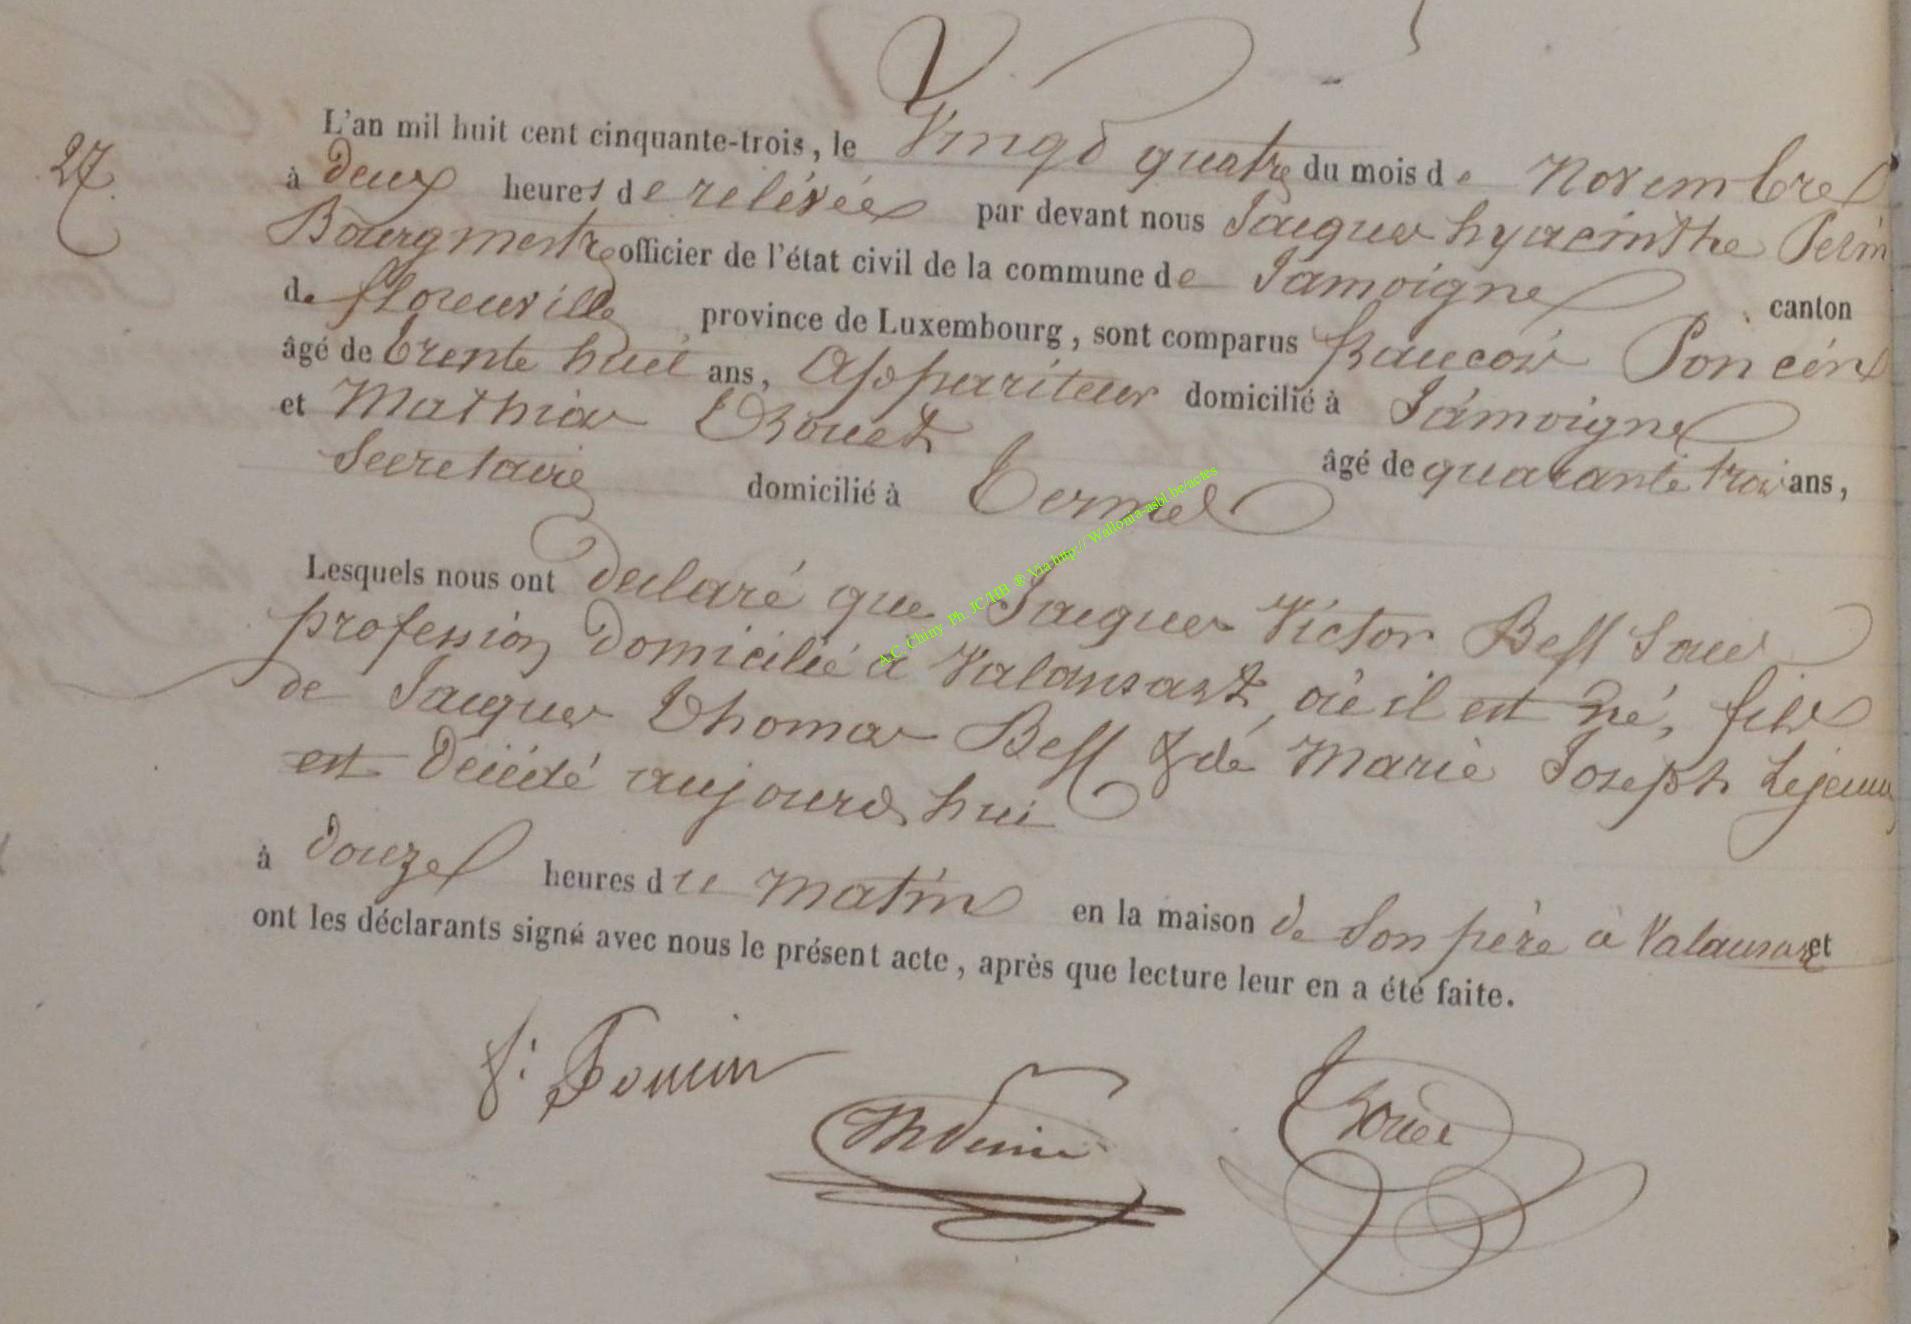 27
L'an mil huit cent cinquante-trois, le Vingt quatre du mois de Novembre
à deux heures de relévée par devant nous Jacques hyacinthe Perin
Bourgmestre officier de l'état civil de la commune de Jamoigne canton
de florenville province de Luxembourg, sont comparus francois Poncin
âgé de trente huit ans, Appariteur domicilié à Jamoigne
et Mathias Throuet âgé de quarante trois ans,
Secretaire domicilié à Termes
Lesquels nous ont declaré que Jacques Victor Bell Sans
profession domicilié à Valansart, où il est né, fils
de Jacques Thomas Bell & de Marie Joseph Lejeune
est décédé aujourd'hui
à douze heures du matin en la maison de Son père à Valansart et
ont les déclarants signé avec nous le présent acte, après que lecture leur en a été faite.
f: Poncin
Throuet
A.C. Chiny Ph. JC/HB ® Via http:// Wallonia-asbl.be/actes